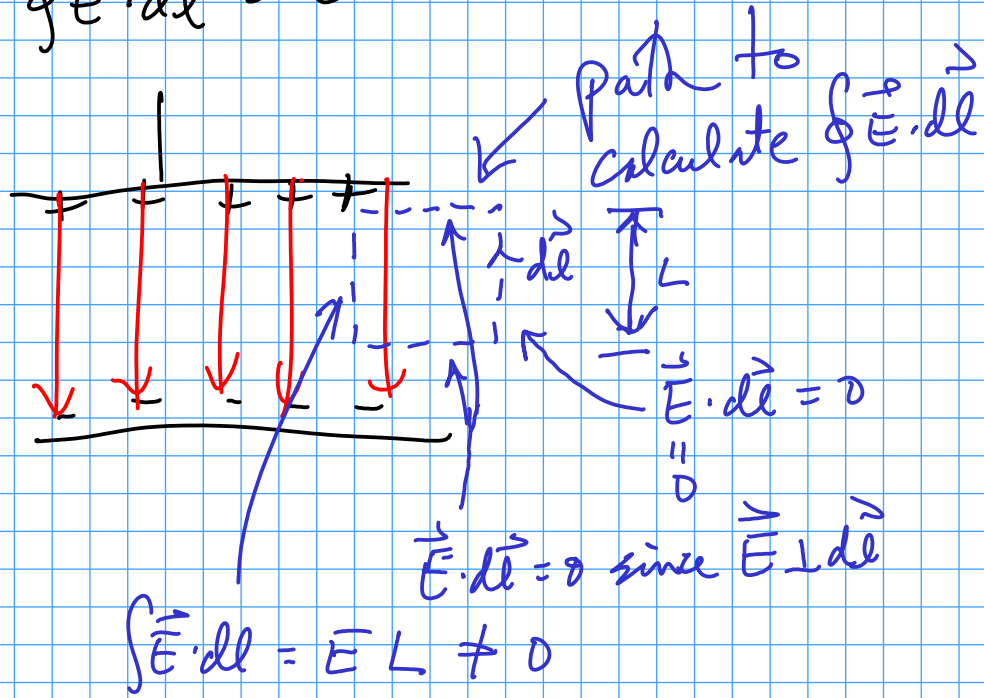 ∮E⃗·dl⃗ = 0
path to
calculate ∮E⃗·dl⃗
+ + + + +
dl⃗
L
E⃗·dl⃗ = 0
=
0
- - - - -
E⃗·dl⃗ = 0 since E⃗ ⊥ dl⃗
∫E⃗·dl = E L ≠ 0